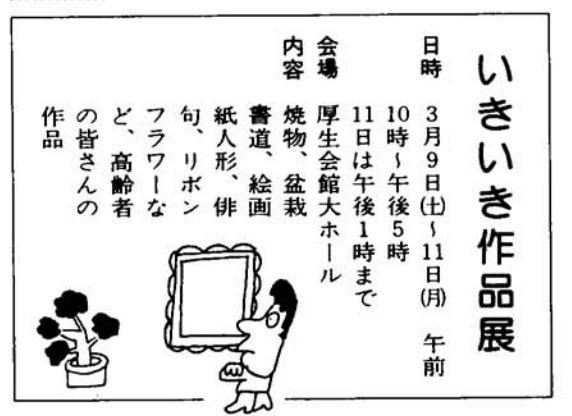 いきいき作品展
日時 3月9日(土)～11日(月) 午前
10時～午後5時
11日は午後1時まで
会場 厚生会館大ホール
内容 焼物、盆栽
書道、絵画
紙人形、俳
句、リボン
フラワーな
ど、高齢者
の皆さんの
作品